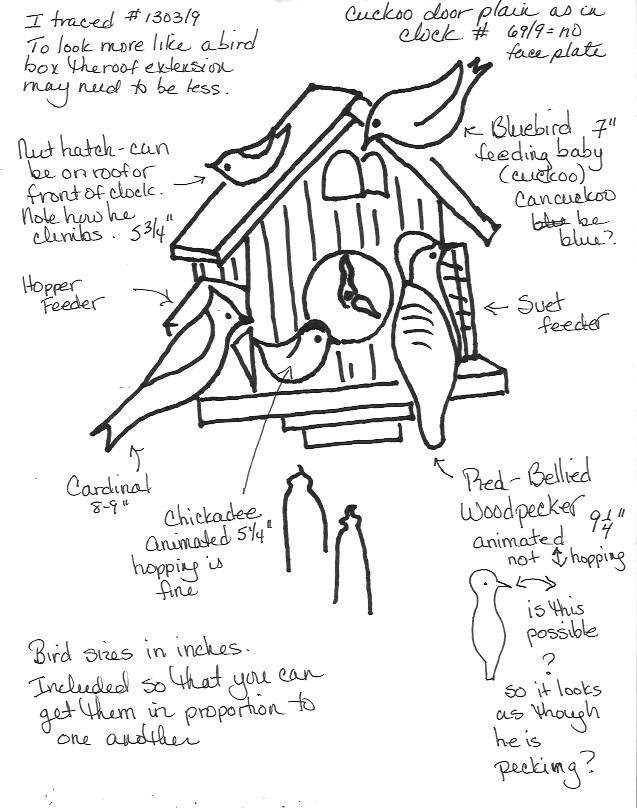 I traced # 1303/9
To look more like a bird
box the roof extension
may need to be less.
Cuckoo door plain as in
clock # 69/9 = no
face plate
Nuthatch - can
be on roof or
front of clock.
Note how he
climbs. 5 3/4"
Bluebird 7"
feeding baby
(cuckoo)
Can cuckoo
blue be
blue?
Hopper
Feeder
Suet
feeder
Cardinal
8-9"
Chickadee
animated 5 1/4"
hopping is
fine
Red-Bellied
Woodpecker
9 1/4"
animated
not hopping
is this
possible
?
so it looks
as though
he is
pecking?
Bird sizes in inches.
Included so that you can
get them in proportion to
one another